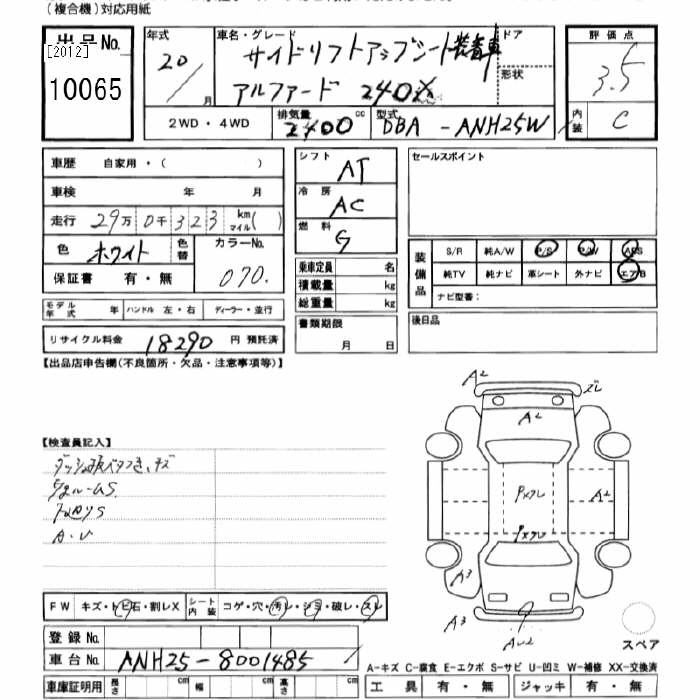 (複合機)対応用紙
出品No. 年式 車名・グレード ドア 評価点
[2012] 20/ 月 サイドリフトアップシート装着車 3.5
10065 アルファード 240X 形状
2WD・4WD 排気量 2400 cc 型式 DBA-ANH25W 内装 C
車歴 自家用・( ) シフト AT セールスポイント
車検 年 月 冷房 AC
走行 29万0千323 km マイル( ) 燃料 G
色 ホワイト 色替 カラーNo. 070.
保証書 有・無
装備品 S/R 純A/W P/S P/W ABS
純TV 純ナビ 革シート 外ナビ エアB
ナビ型番:
乗車定員 名
積載量 kg
総重量 kg
モデル年式 年 ハンドル 左・右 ディーラー・並行
書類期限 月 日
後日品
リサイクル料金 18290 円 預託済
【出品店申告欄(不良箇所・欠品・注意事項等)】
A2 ズレ
A2
【検査員記入】
キズ
S
S
A・U
PXズレ A2
PXズレ
A3
A3
AU2
FW キズ・トビ石・割レX シート内装 コゲ・穴・汚レ・シミ・破レ・スレ
登録No.
スペア
車台No. ANH25-8001485
A-キズ C-腐食 E-エクボ S-サビ U-凹ミ W-補修 XX-交換済
車庫証明用 長さ cm 幅 cm 高さ cm 工具 有・無 ジャッキ 有・無